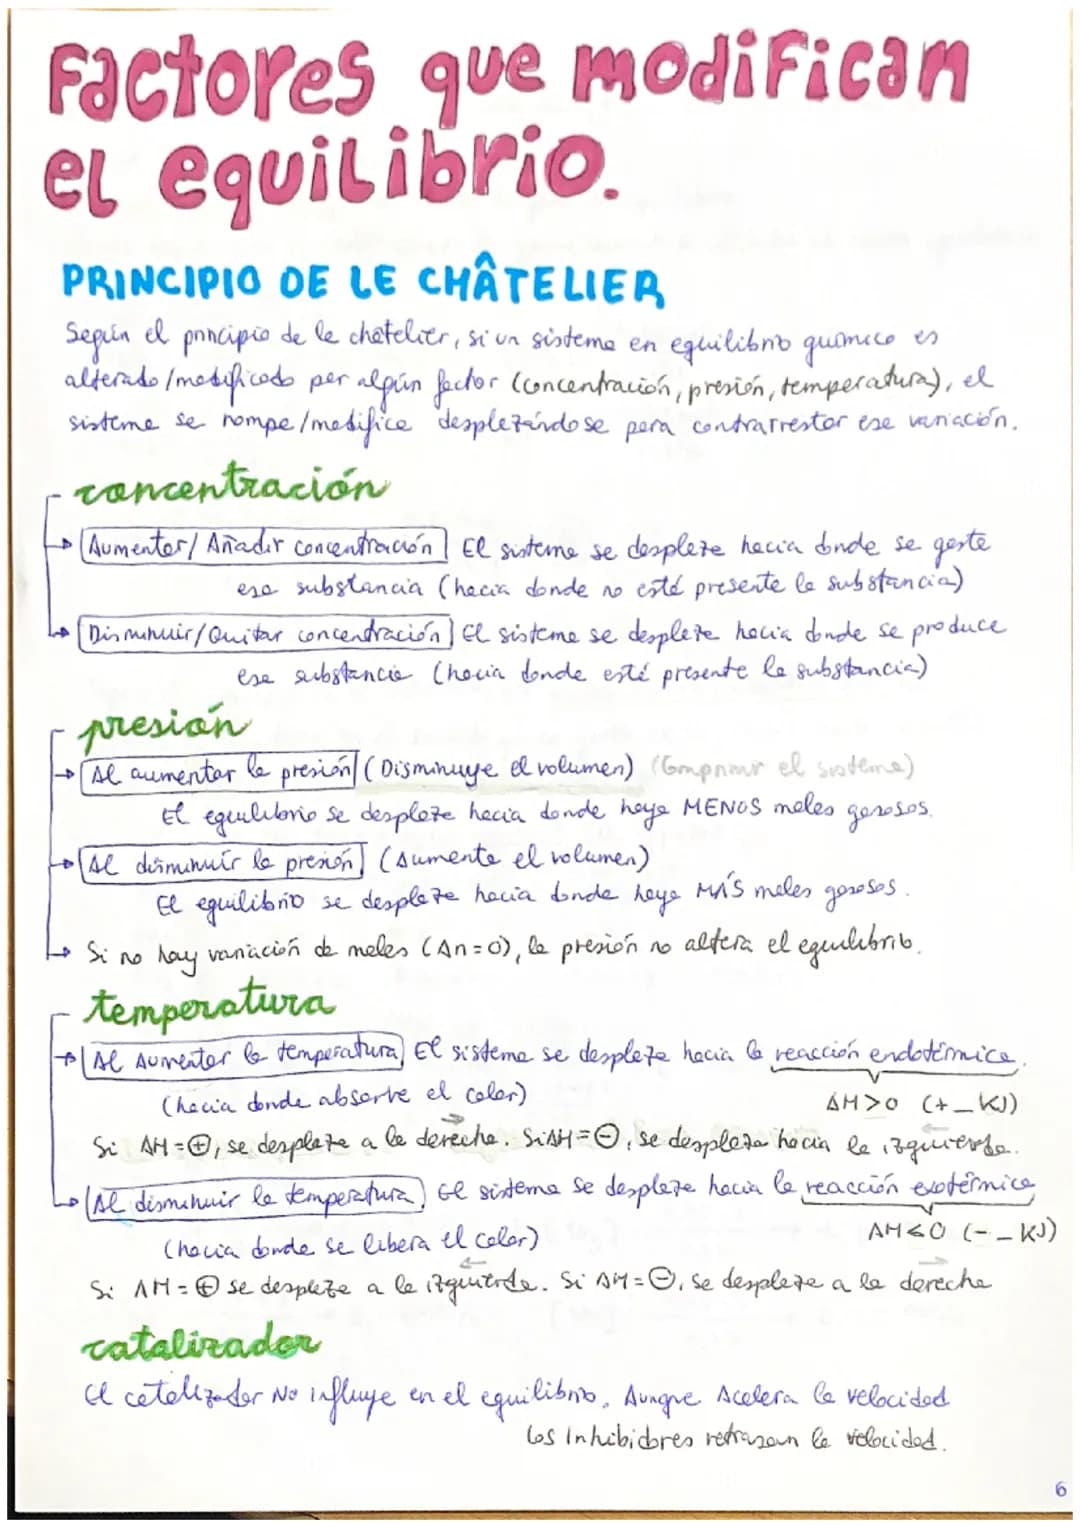 Factores que modifican
el equilibrio.
PRINCIPIO DE LE CHÂTELIER
Según el principio de le chatelier, si un sistema en equilibrio químico es
alterado/modificado por algún factor (concentración, presión, temperatura), el
sistema se rompe/modifica desplazándose para contrarrestar esa variación.
concentración
Aumentar/Añadir concentración El sistema se desplaza hacia donde se gasta
esa substancia (hacia donde no está presente la substancia)
Disminuir/Quitar concentración El sistema se desplaza hacia donde se produce
esa substancia (hacia donde está presente la substancia)
presión
Al aumentar la presión (Disminuye el volumen) (Comprimir el sistema)
El equilibrio se desplaza hacia donde haya MENOS moles gaseosos.
Al disminuir la presión (Aumenta el volumen)
El equilibrio se desplaza hacia donde haya MÁS moles gaseosos.
Si no hay variación de moles (Δn=0), la presión no altera el equilibrio.
temperatura
Al Aumentar la temperatura El sistema se desplaza hacia la reacción endotérmica.
(hacia donde absorve el calor) ΔH>0 (+_KJ)
Si ΔH=⊕, se desplaza a la derecha. Si ΔH=⊖, se desplaza hacia la izquierda.
Al disminuir la temperatura El sistema se desplaza hacia la reacción exotérmica
(hacia donde se libera el calor) ΔH<0 (-_KJ)
Si ΔH=⊕ se desplaza a la izquierda. Si ΔH=⊖, se desplaza a la derecha
catalizador
El catalizador No influye en el equilibrio. Aunque Acelera la velocidad
Los Inhibidores retrasan la velocidad.
6